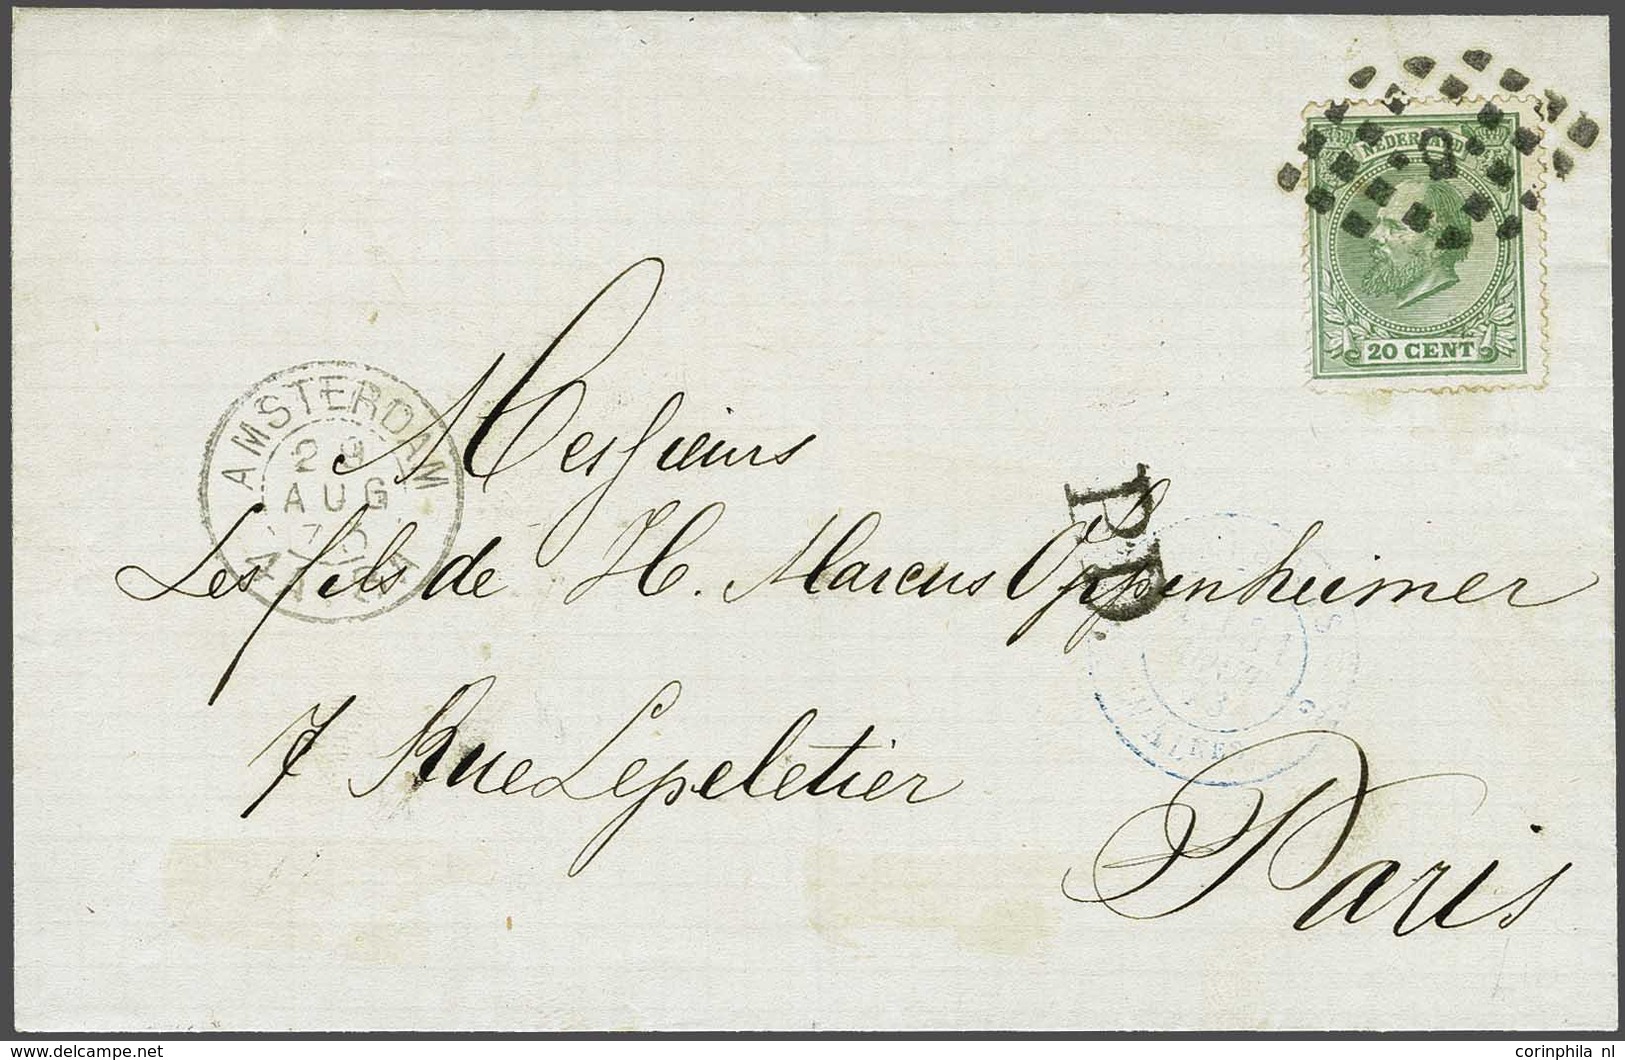 NEDERLAND
20 CENT
AMSTERDAM
29
AUG
75
Messieurs
Les fils de H. Marcus Oppenheimer
PD.
7 Rue Lepeletier
Paris
corinphila nl